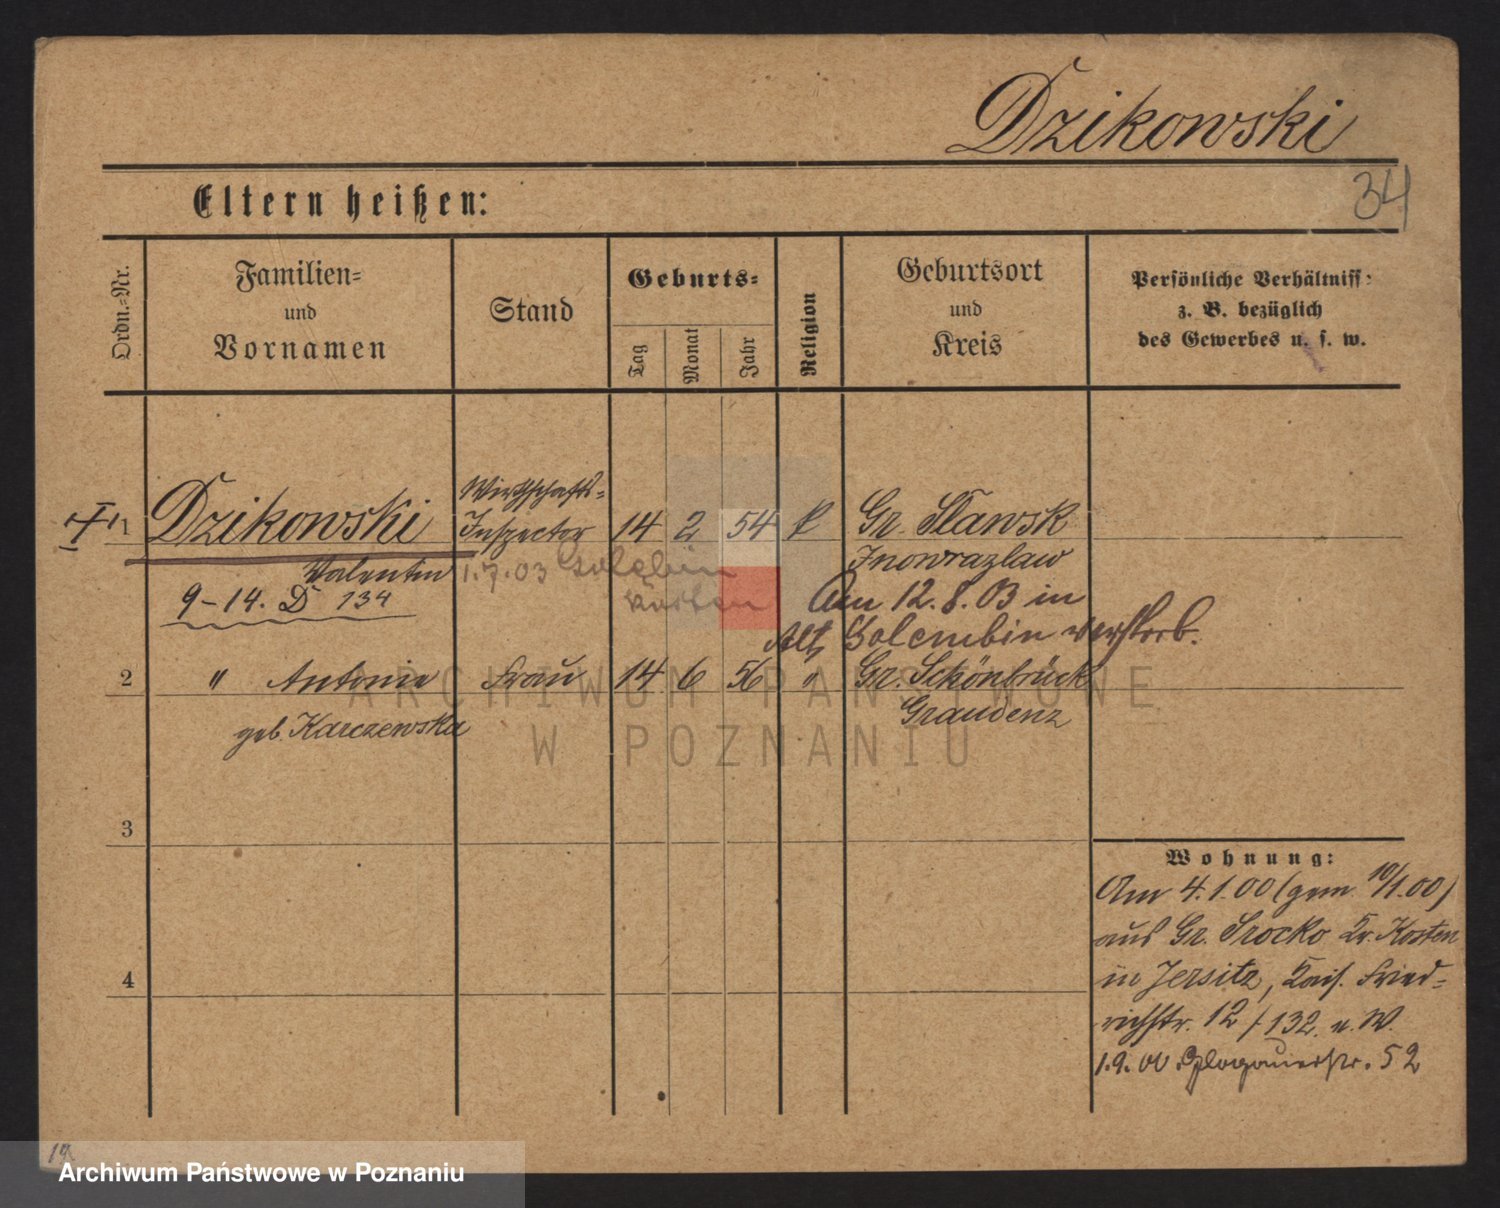 Dzikowski
34
Eltern heißen:
Ordn.-Nr.
Familien-
und
Vornamen
Stand
Geburts-
Tag
Monat
Jahr
Religion
Geburtsort
und
Kreis
Persönliche Verhältniss:
z. B. bezüglich
des Gewerbes u. s. w.
Wirthschafts-
1 Dzikowski Inspector 14 2 54 k Gr. Slawsk
Valentin 1.7.03 Golębin Inowrazlaw
9-14. D 134 Kosten Am 12.8.03 in
Alt Golembin verstorb.
2 " Antonie Frau 14 6 56 " Gr. Schönbrück
geb. Karczewska Graudenz
3
4
Wohnung:
Am 4.1.00 (gem. 10/1.00)
aus Gr. Srocko Kr. Kosten
in Jersitz, Kais. Fried-
richstr. 12 / 132. u. W.
1.9.00 Glogauerstr. 52
ARCHIWUM PAŃSTWOWE
W POZNANIU
Archiwum Państwowe w Poznaniu